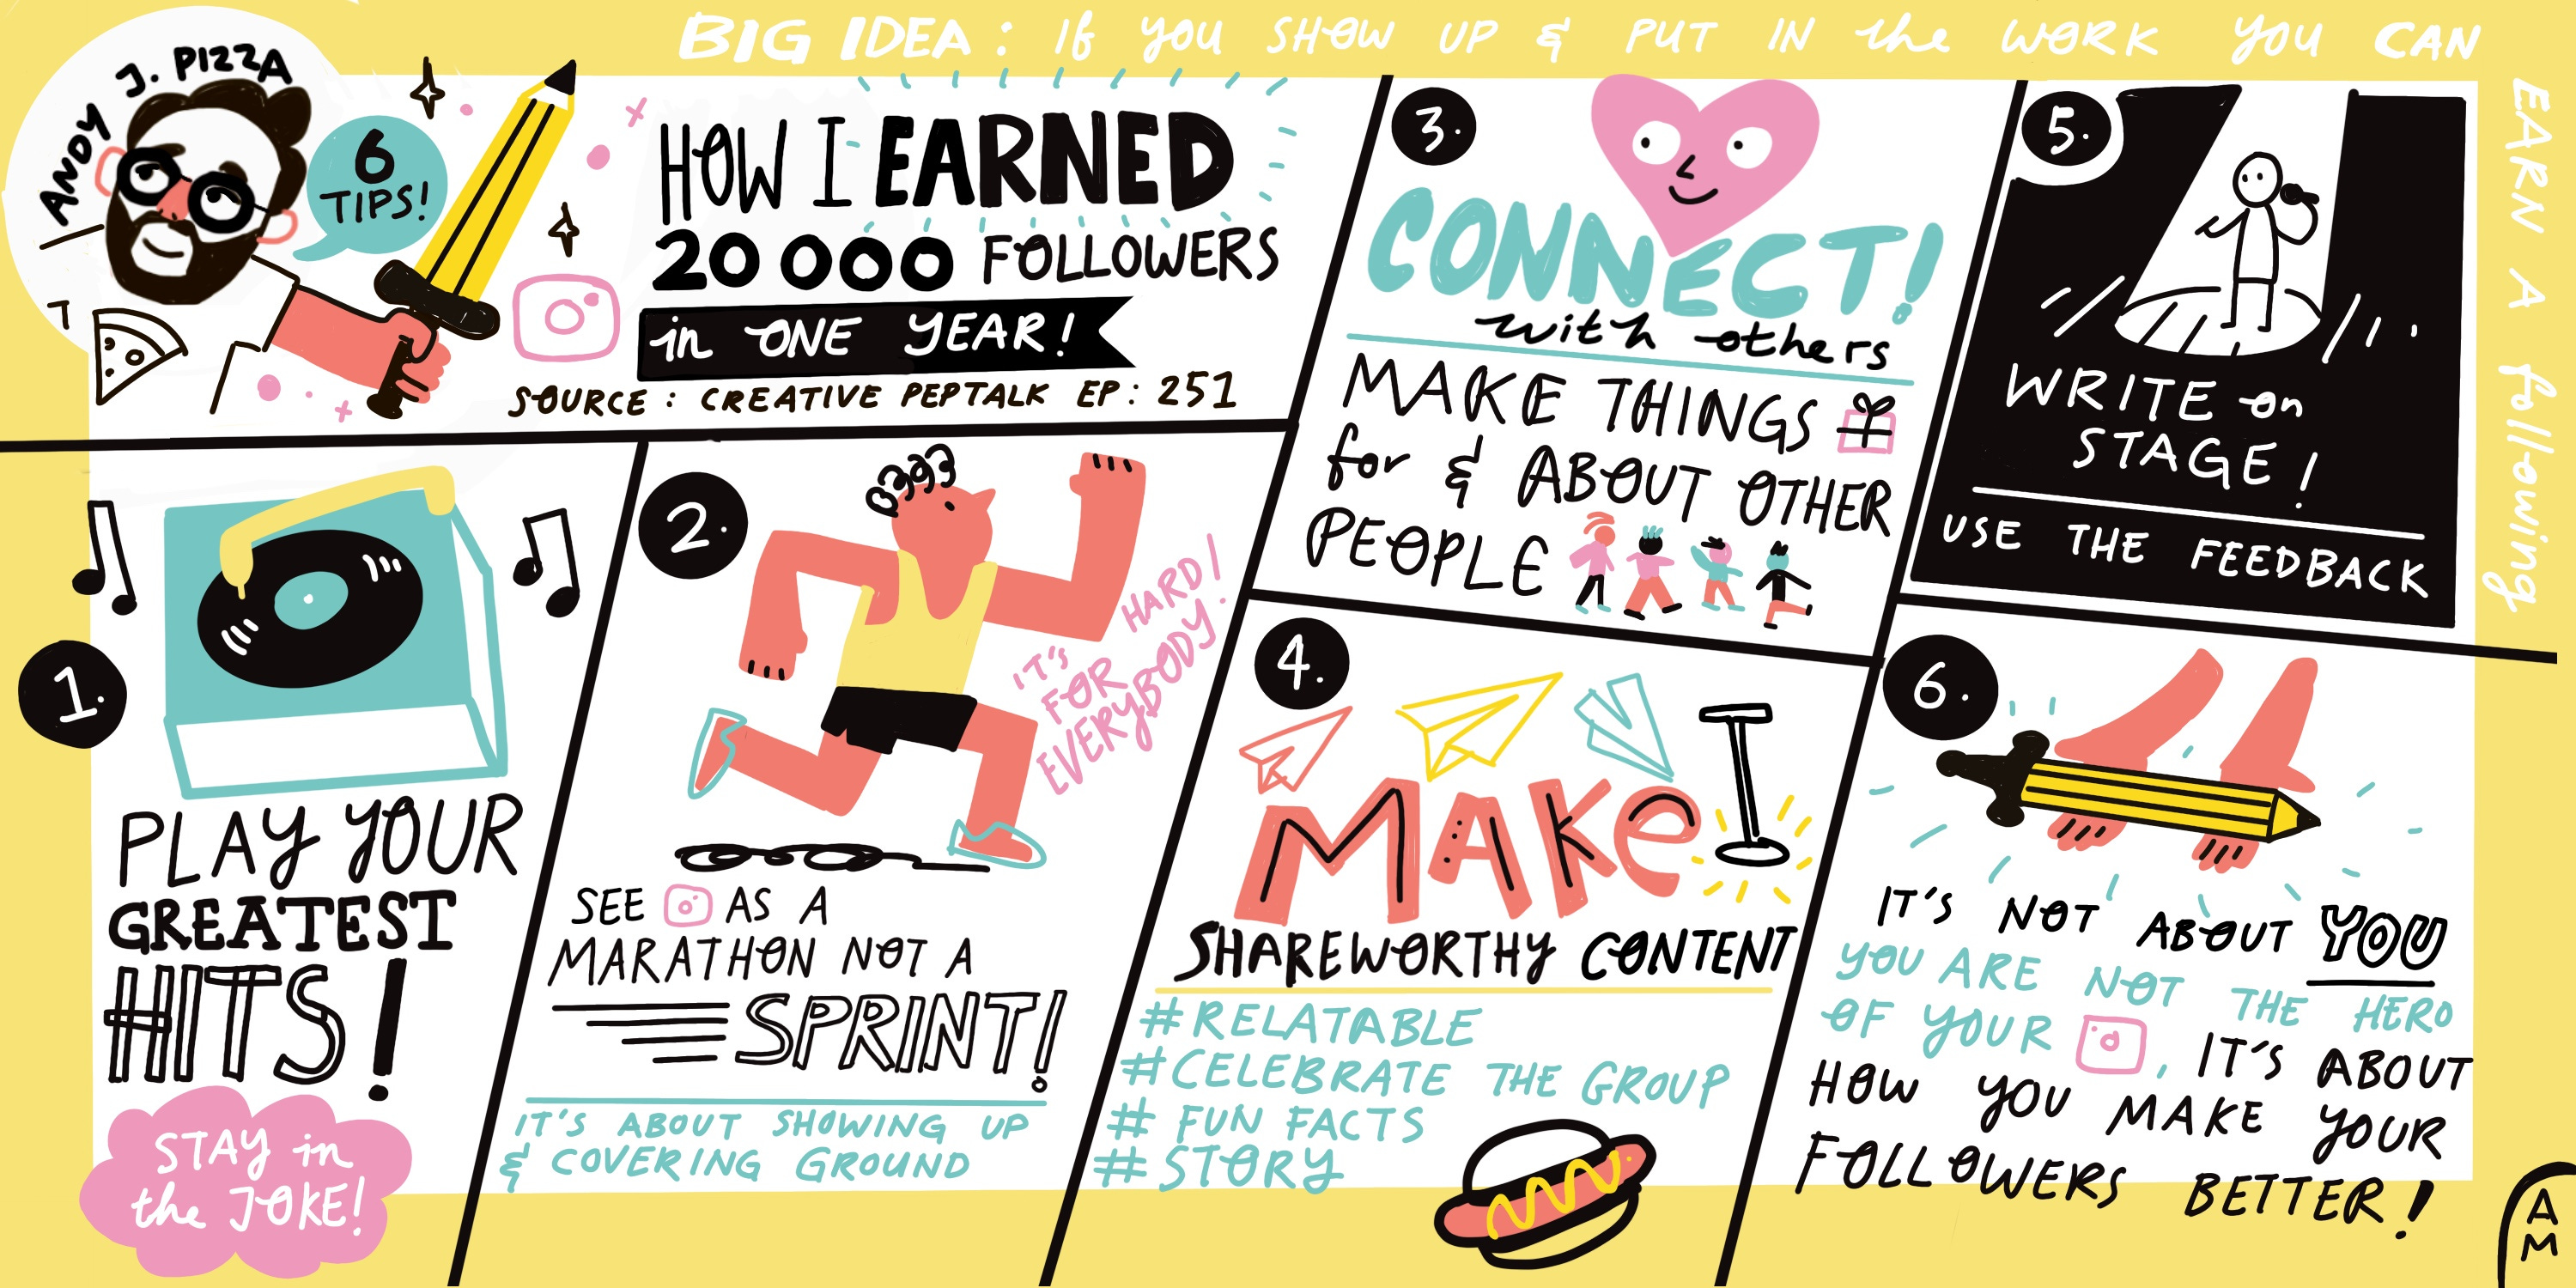 BIG IDEA: If YOU SHOW UP & PUT IN the WORK YOU CAN
EARN A following
ANDY J. PIZZA
6
TIPS!
HOW I EARNED
20 000 FOLLOWERS
in ONE YEAR!
SOURCE: CREATIVE PEPTALK EP: 251
1.
PLAY YOUR
GREATEST
HITS!
STAY in
the JOKE!
2.
IT'S HARD!
FOR
EVERYBODY!
SEE AS A
MARATHON NOT A
SPRINT!
IT'S ABOUT SHOWING UP
& COVERING GROUND
3.
CONNECT!
with others
MAKE THINGS
for & ABOUT OTHER
PEOPLE
4.
MAKE
SHAREWORTHY CONTENT
#RELATABLE
#CELEBRATE THE GROUP
# FUN FACTS
#STORY
5.
WRITE on
STAGE!
USE THE FEEDBACK
6.
IT'S NOT ABOUT YOU
YOU ARE NOT THE HERO
OF YOUR , IT'S ABOUT
HOW YOU MAKE YOUR
FOLLOWERS BETTER!
AM